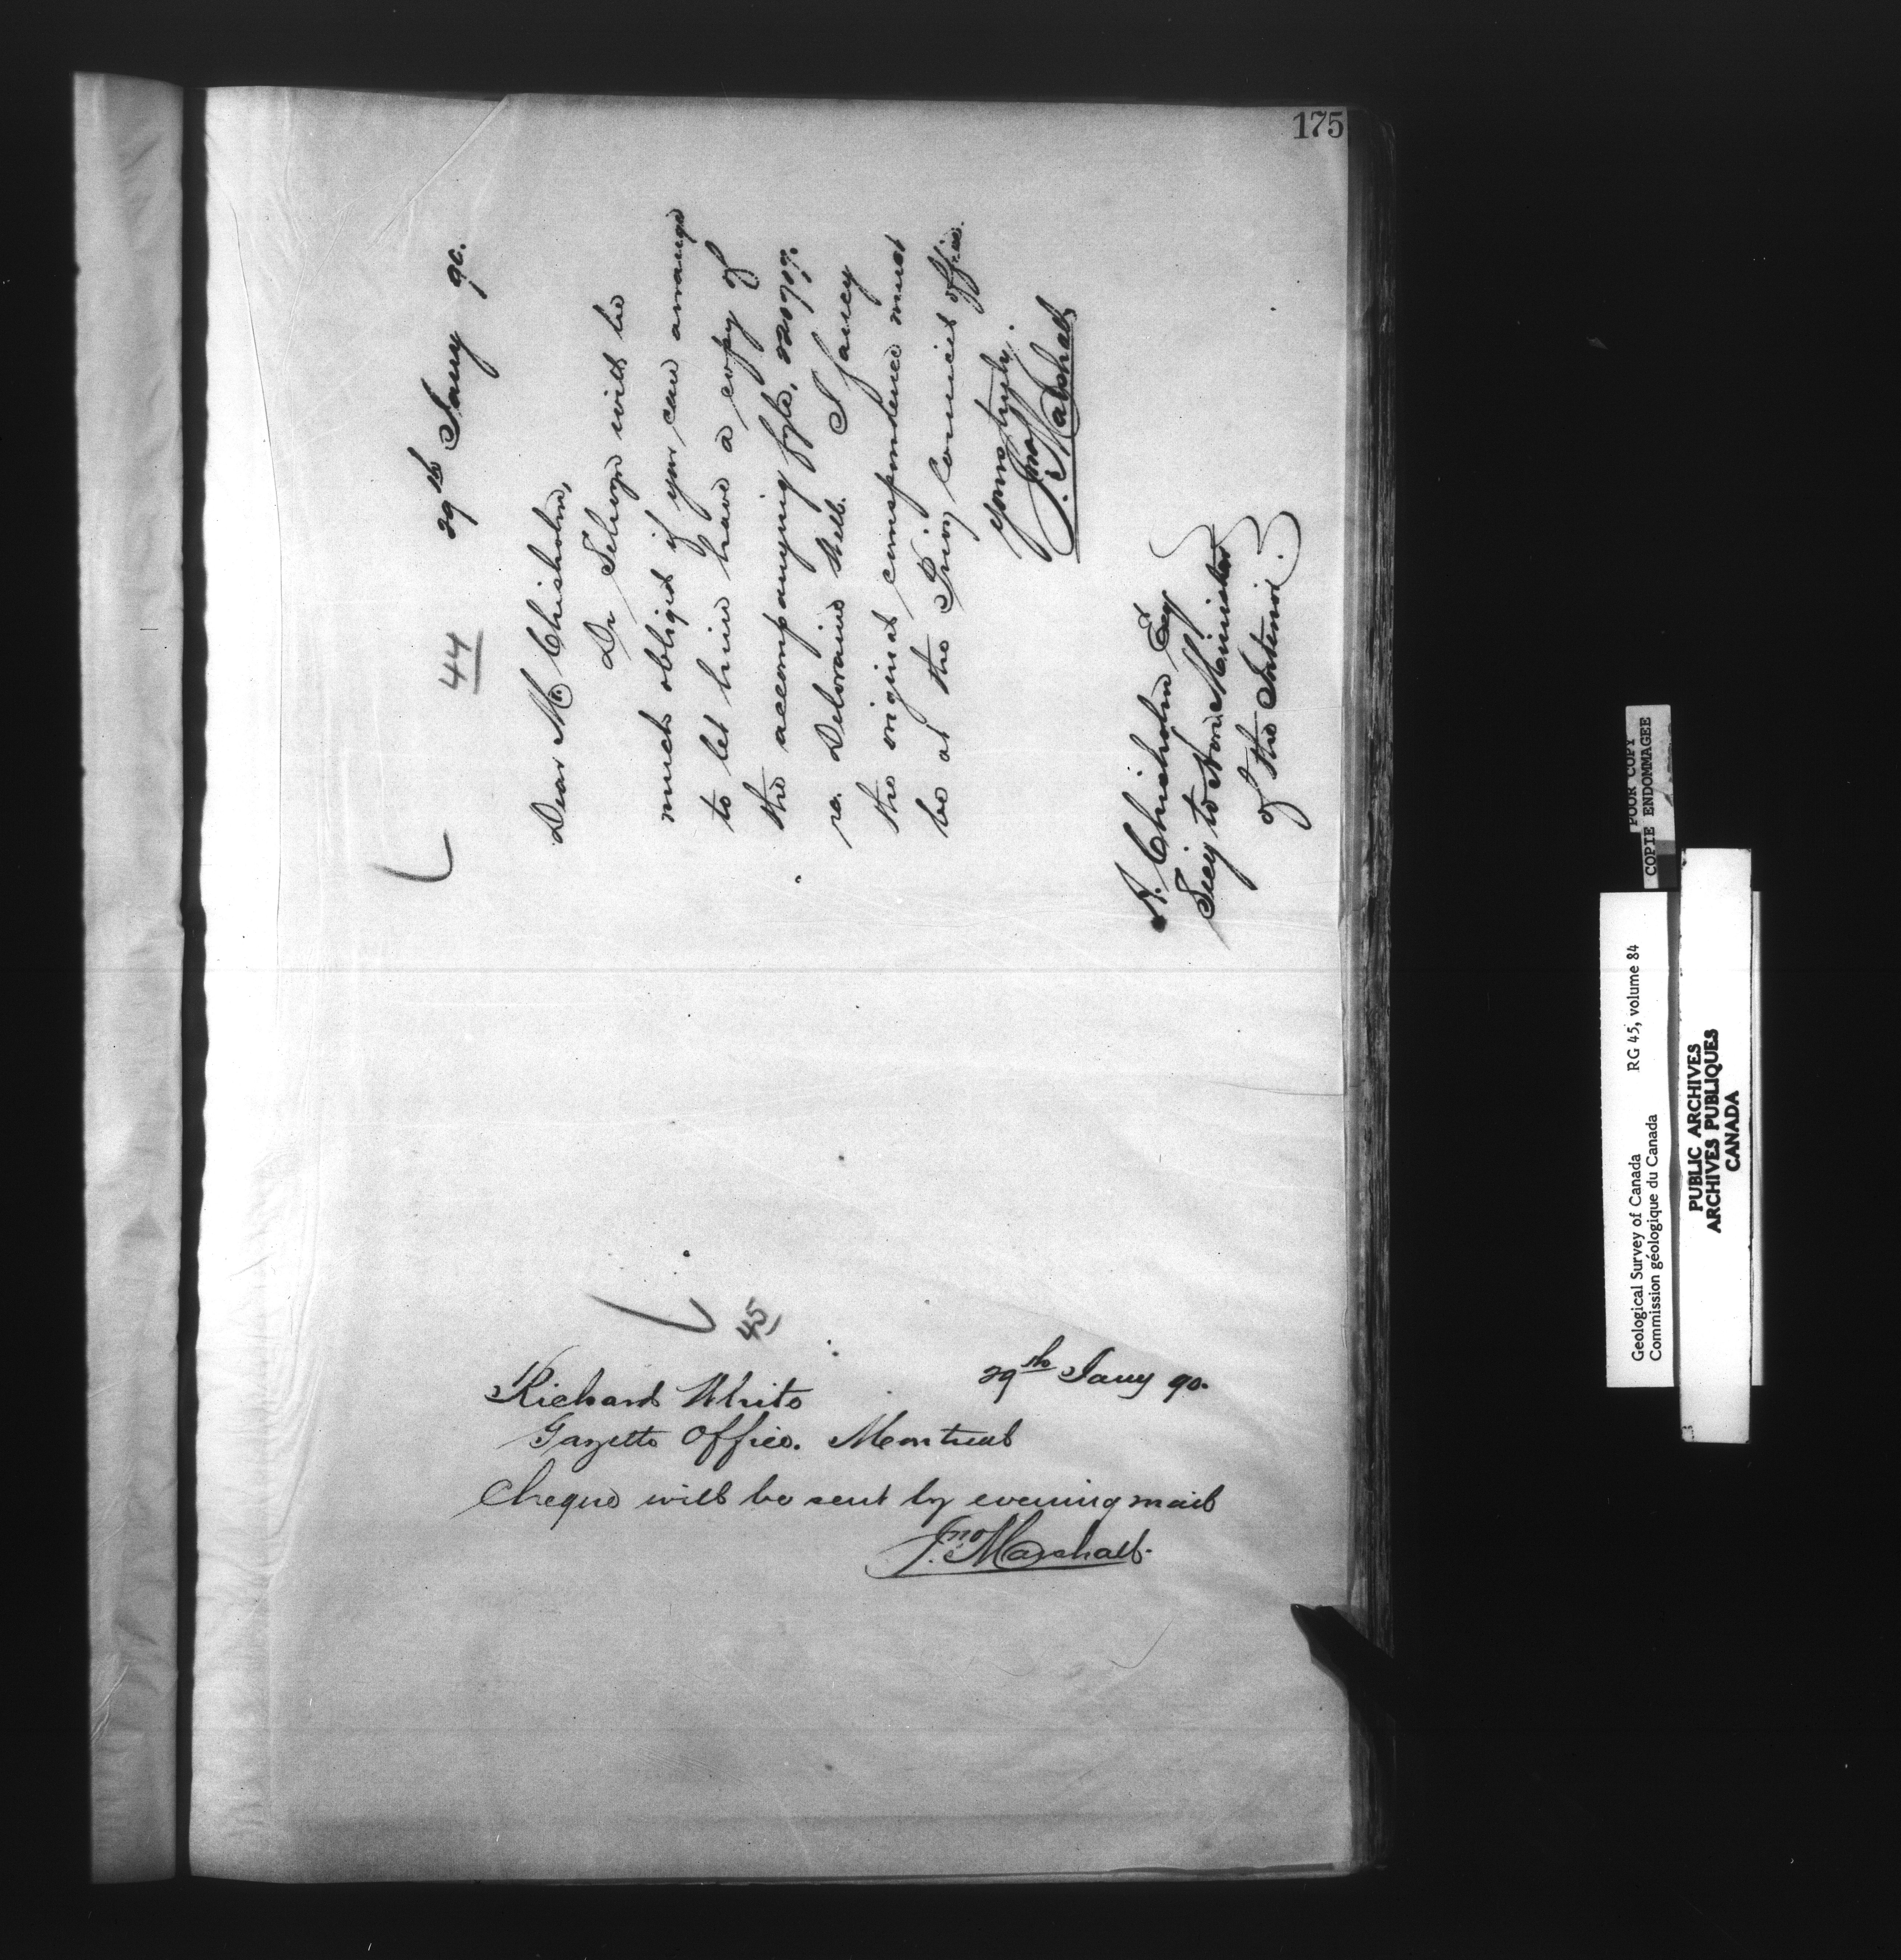 175
44
29th Jany 90.
Dear Mr Chisholm,
Dr Selwyn will be
much obliged if you can arrange
to let him have a copy of
the accompanying fyle,
re. Deloraine Well. I fancy
the original correspondence must
be at the Privy Council Office.
Yours truly.
Jno Marshall
A. Chisholm Esqr
Secy to Hon. Minister
of the Interior.
45
29th Jany 90.
Richard White
Gazette Office. Montreal
Cheque will be sent by evening mail
Jno Marshall.
POOR COPY
COPIE ENDOMMAGEE
Geological Survey of Canada RG 45, volume 84
Commission géologique du Canada
PUBLIC ARCHIVES
ARCHIVES PUBLIQUES
CANADA